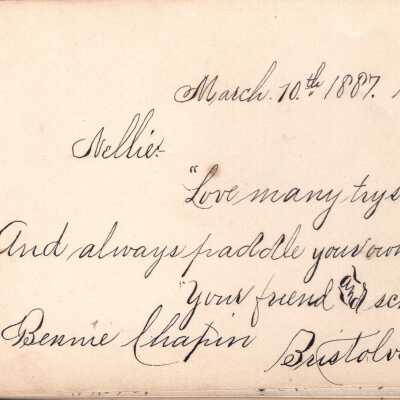 March. 10.th 1887.
Nellie.
"Love many trys
And always paddle your own
"Your friend and sc
Bennie Chapin
Bristolv